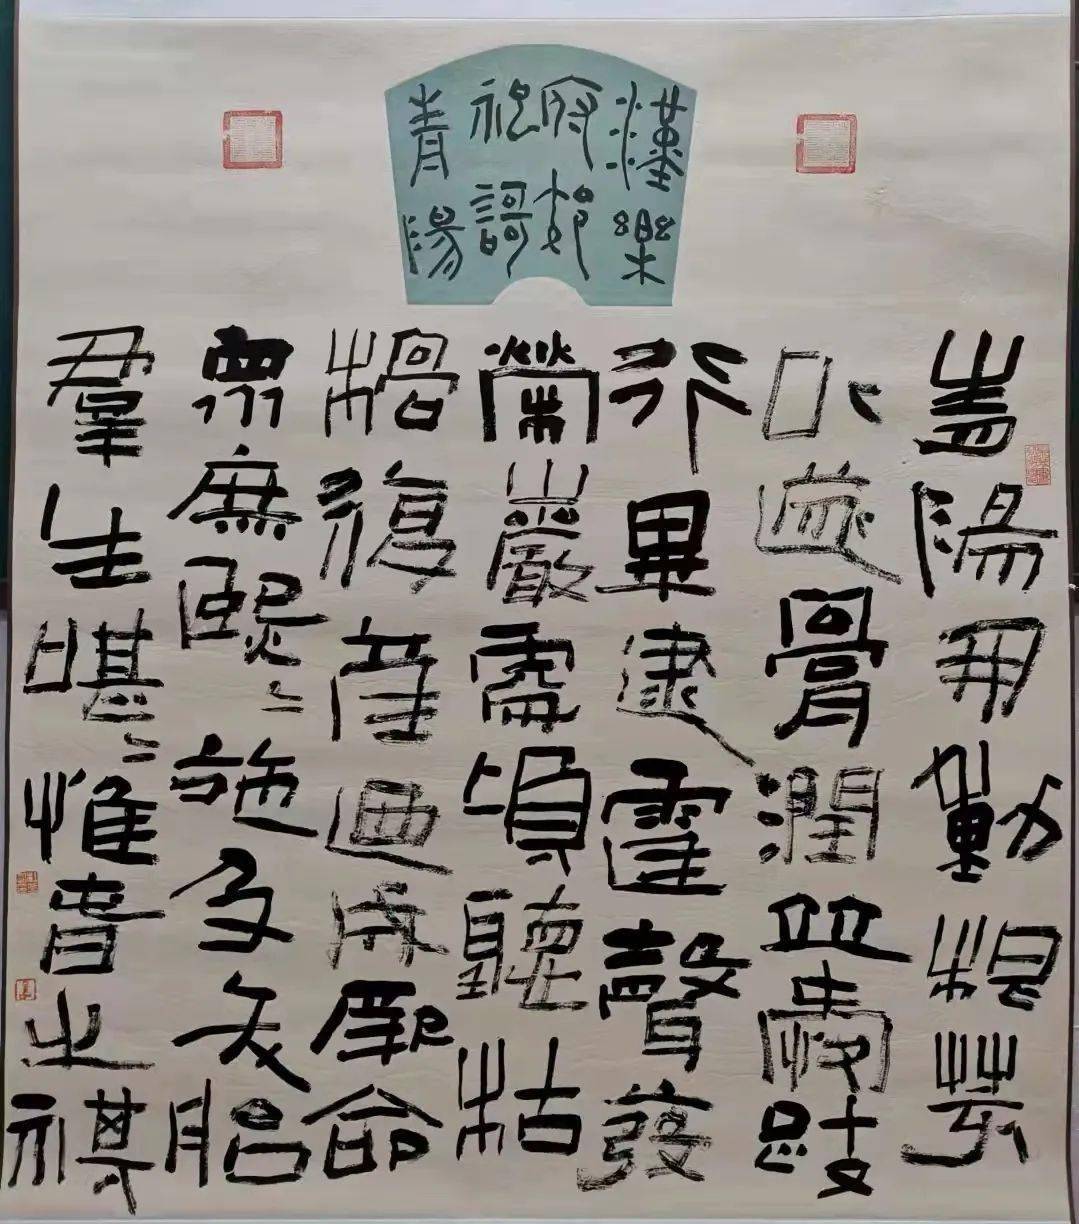 漢樂
府郊
祀謌
青陽
青陽用動根荄
以遂膏潤並愛跂
行畢逮霆聲發
榮巖處頃聽枯
槁復產迺成厥命
眾庶熙〻施及夭胎
羣生啿〻惟春之祺